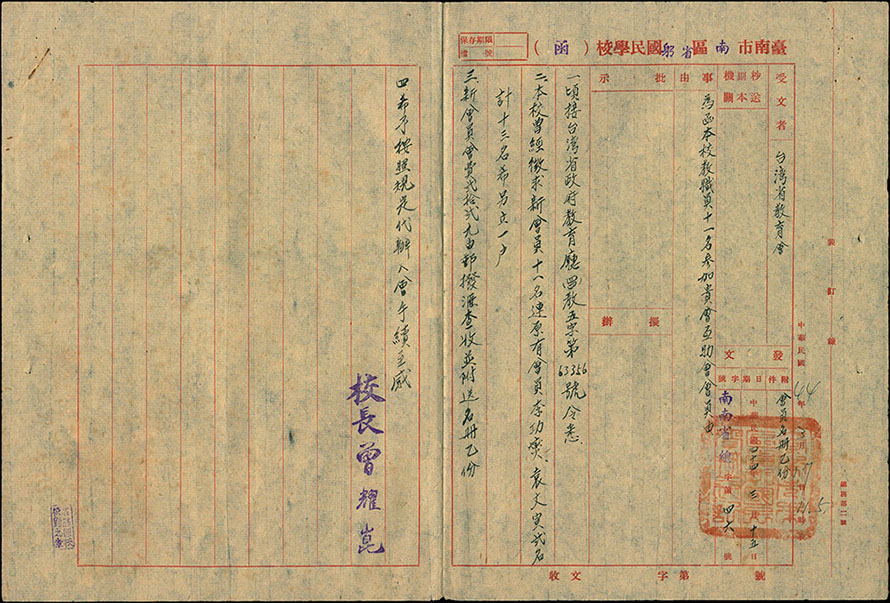 臺南市南區省躬國民學校(函)
保存期限
檔號
受文者 台灣省教育會
抄送副本機關
事由 為函本校教職員十一名參加貴會互助會會員由
批示
擬辦
發文
附件 會員名冊乙份
日期 中華民國四十四年三月十五日
字號 南南省總字第四六號
中華民國44年3月17日
裝訂線
一、頃接台湾省政府教育廳(四四)教五字第63356號令悉。
二、本校曾經徵求新會員十一名連原有會員李功奕、袁文寅弍名
計十三名希另立一戶
三、新會員會費弍拾弍元由郵撥滙查收並附送名冊乙份
四、希予按照規定代辦入會手續至感
校長曾耀崑
收文 字第 號